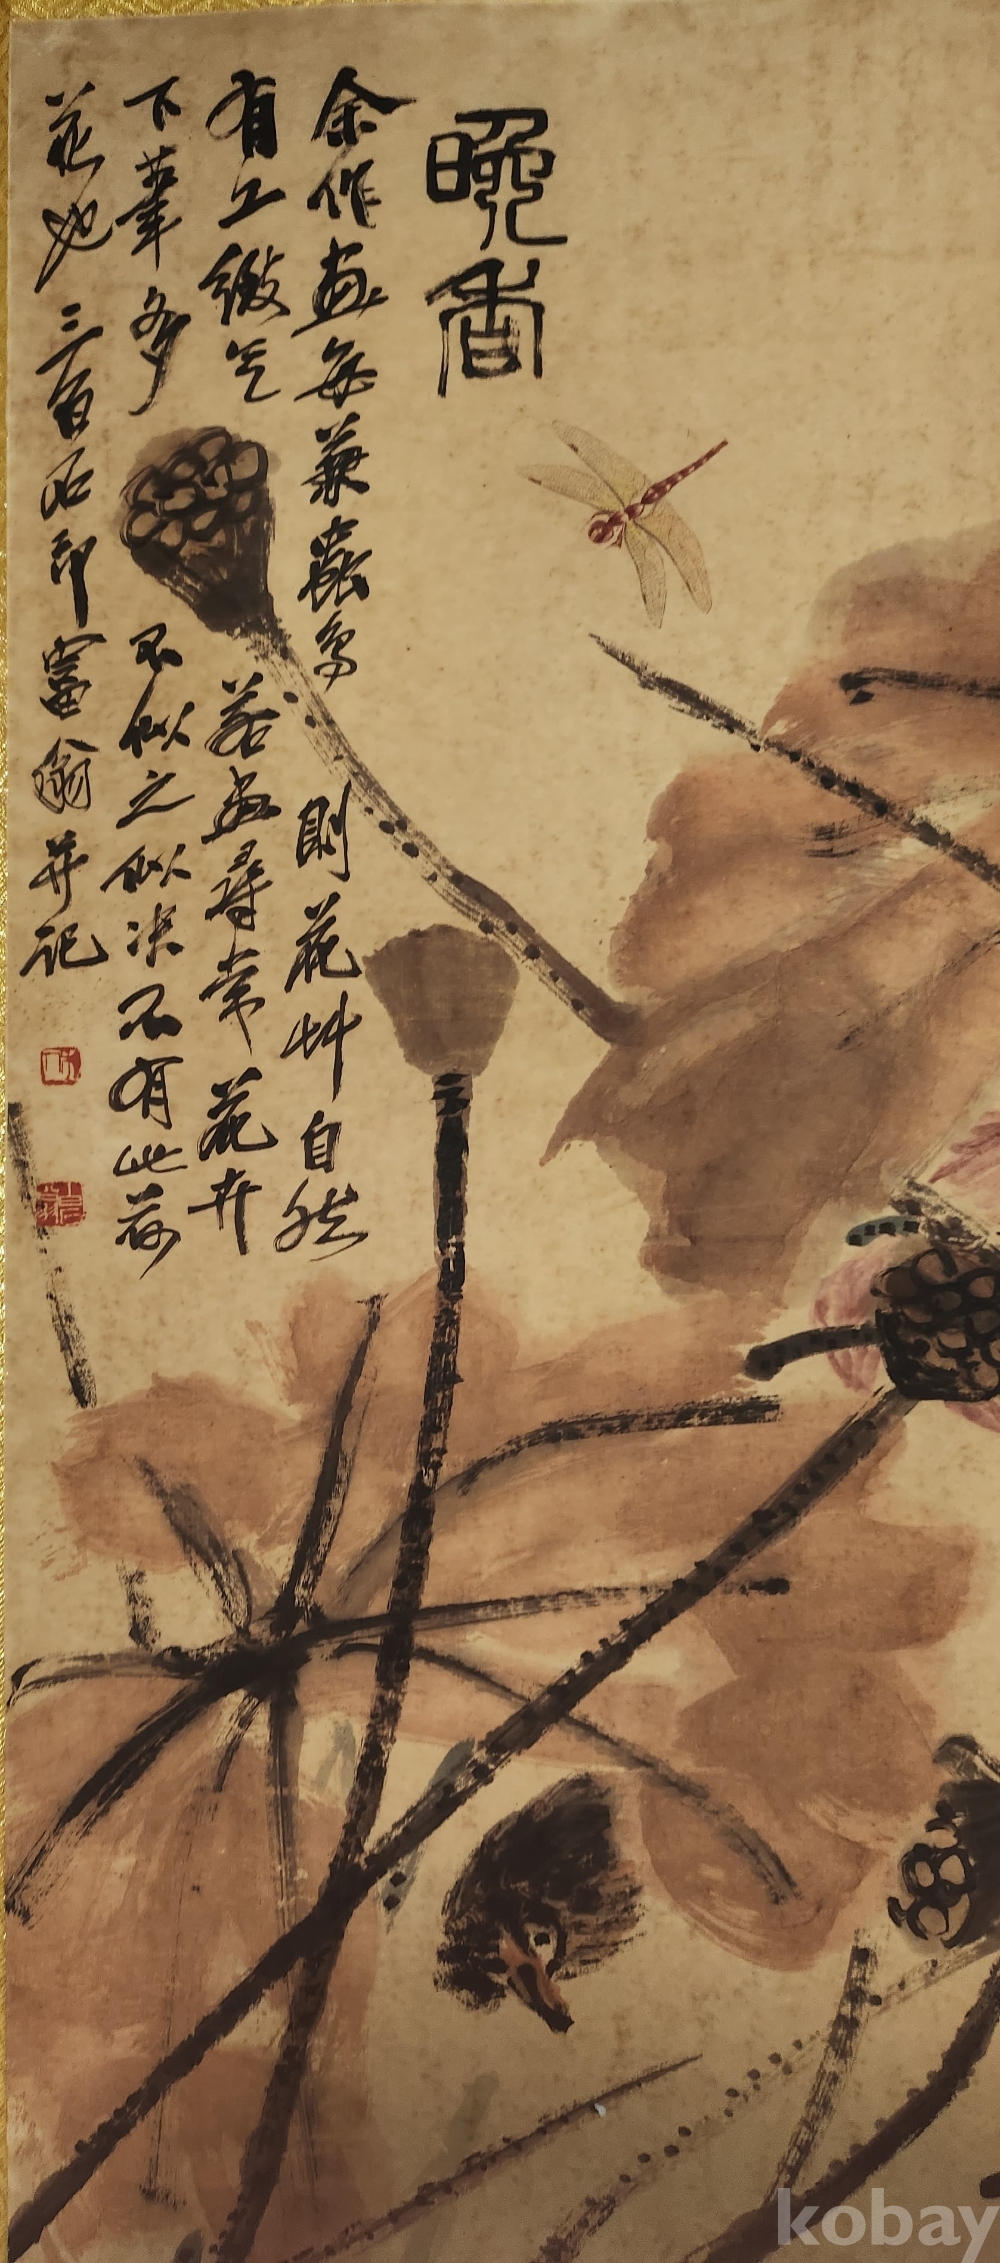 晚香
余作畫每兼蟲鳥則花艸自然
有工緻气若畫尋常花卉
下筆多不似之似決不有此荷
花也三百石印富翁并記
kobay